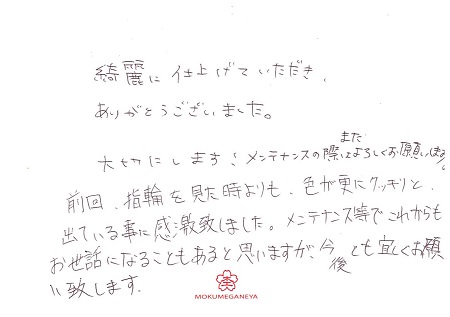 綺麗に仕上げていただき、
ありがとうございました。
大切にします!メンテナンスの際はまたよろしくお願いします。
前回、指輪を見た時よりも、色が更にクッキリと、
出ている事に感激致しました。メンテナンス等でこれからも
お世話になることもあると思いますが、今後とも宜しくお願
い致します。
MOKUMEGANEYA